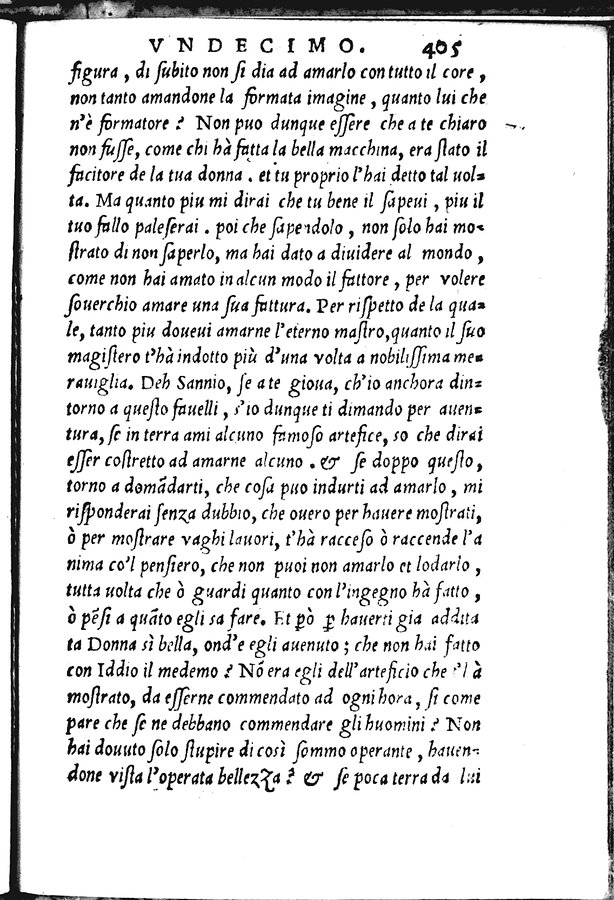 VNDECIMO. 405
figura, di ſubito non ſi dia ad amarlo con tutto il core,
non tanto amandone la formata imagine, quanto lui che
n'è formatore? Non puo dunque eſſere che a te chiaro
non fuſſe, come chi hà fatta la bella macchina, era ſtato il
facitore de la tua donna. et tu proprio l'hai detto tal uol=
ta. Ma quanto piu mi dirai che tu bene il ſapeui, piu il
tuo fallo paleſerai. poi che ſapendolo, non ſolo hai mo=
ſtrato di non ſaperlo, ma hai dato a diuidere al mondo,
come non hai amato in alcun modo il fattore, per volere
ſouerchio amare una ſua fattura. Per riſpetto de la qua=
le, tanto piu doueui amarne l'eterno maſtro, quanto il ſuo
magiſtero t'hà indotto più d'una volta a nobiliſſima me=
rauiglia. Deh Sannio, ſe a te gioua, ch'io anchora din=
torno a queſto fauelli, s'io dunque ti dimando per auen=
tura, ſe in terra ami alcuno famoſo artefice, ſo che dirai
eſſer coſtretto ad amarne alcuno. & ſe doppo queſto,
torno a domādarti, che coſa puo indurti ad amarlo, mi
riſponderai ſenza dubbio, che ouero per hauere moſtrati,
ò per moſtrare vaghi lauori, t'hà racceſo ò raccende l'a
nima co'l penſiero, che non puoi non amarlo et lodarlo,
tutta uolta che ò guardi quanto con l'ingegno hà fatto,
ò pēſi a quāto egli sa fare. Et ꝑò ꝑ hauerti gia addita
ta Donna sì bella, ond'e egli auenuto; che non hai fatto
con Iddio il medemo? Nō era egli dell'arteficio che t'hà
moſtrato, da eſſerne commendato ad ogni hora, ſi come
pare che ſe ne debbano commendare gli huomini? Non
hai douuto ſolo ſtupire di così ſommo operante, hauen=
done viſta l'operata bellezza? & ſe poca terra da lui